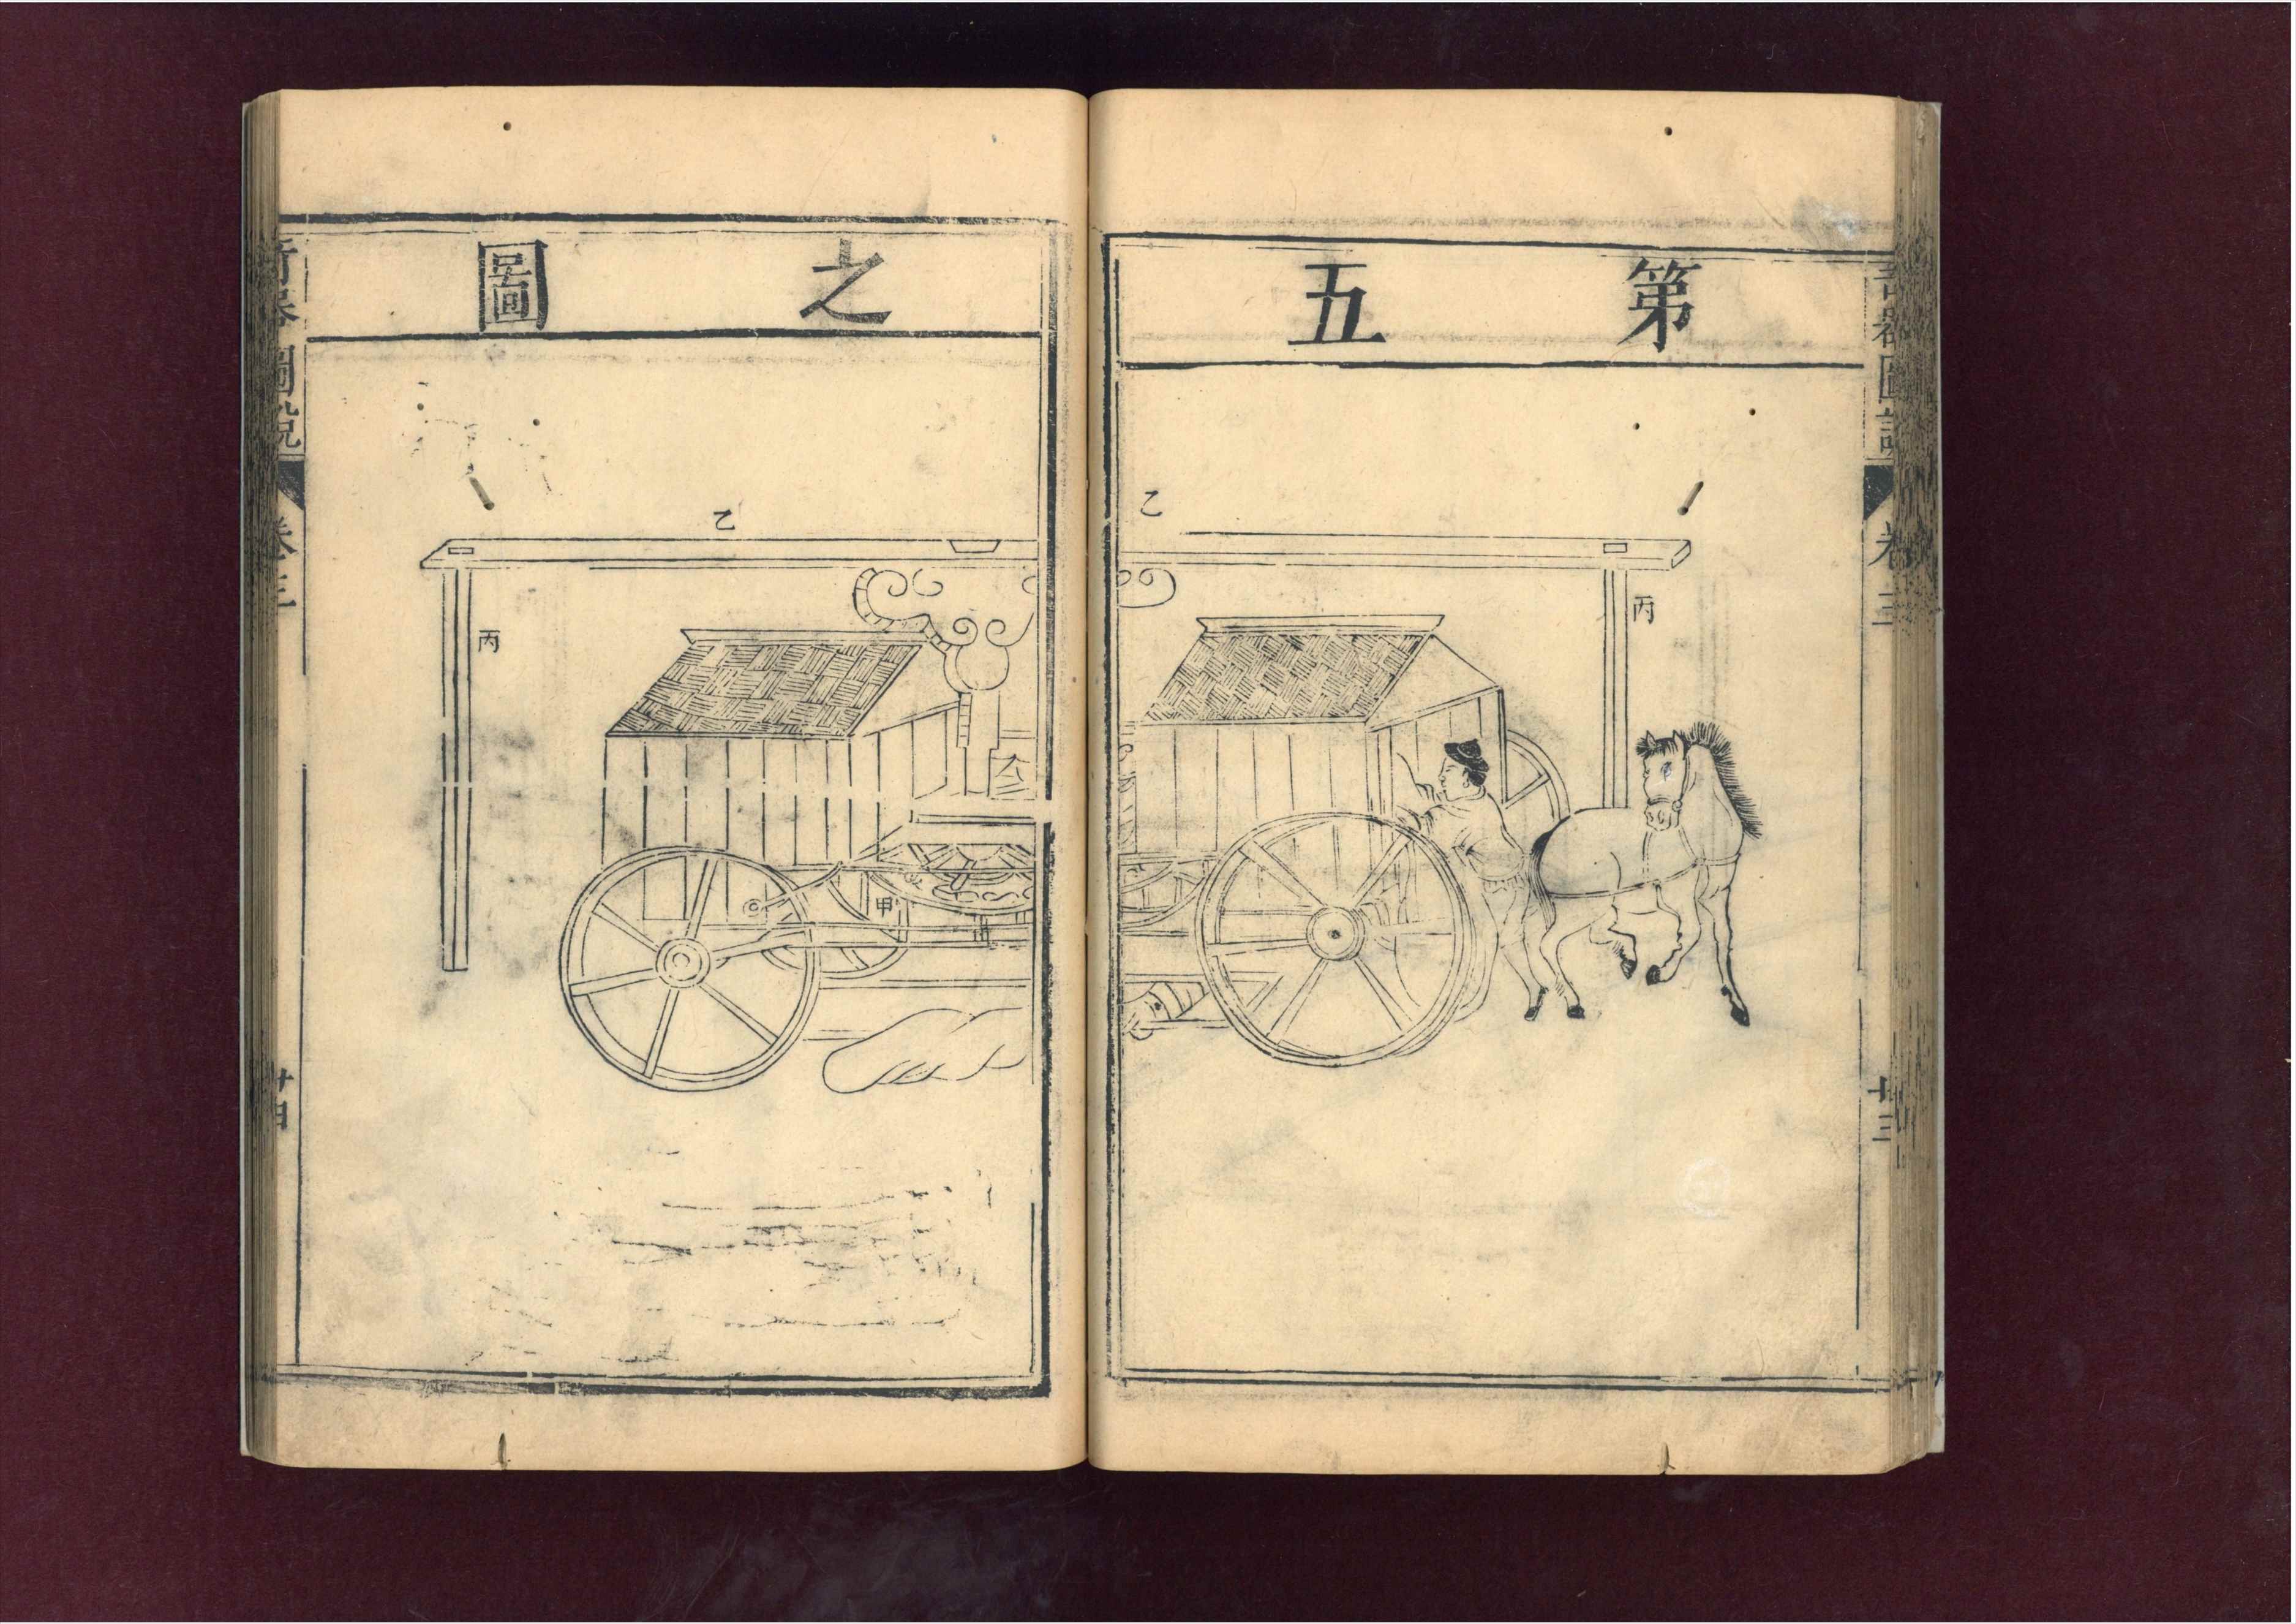 第五
之圖
乙
丙
乙
丙
甲
奇器圖說
卷三
廿三
奇器圖說
卷三
廿四